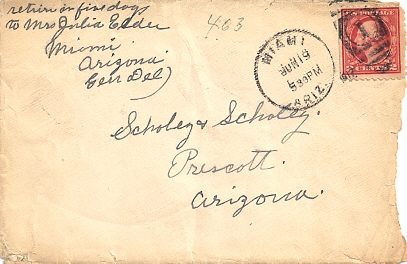 return in five days
to Mrs Julia Elder
Miami
Arizona
Gen Del)
463
MIAMI
JUN 19
530PM
ARIZ.
2 CENTS 2
Scholey & Scholey.
Prescott.
Arizona.